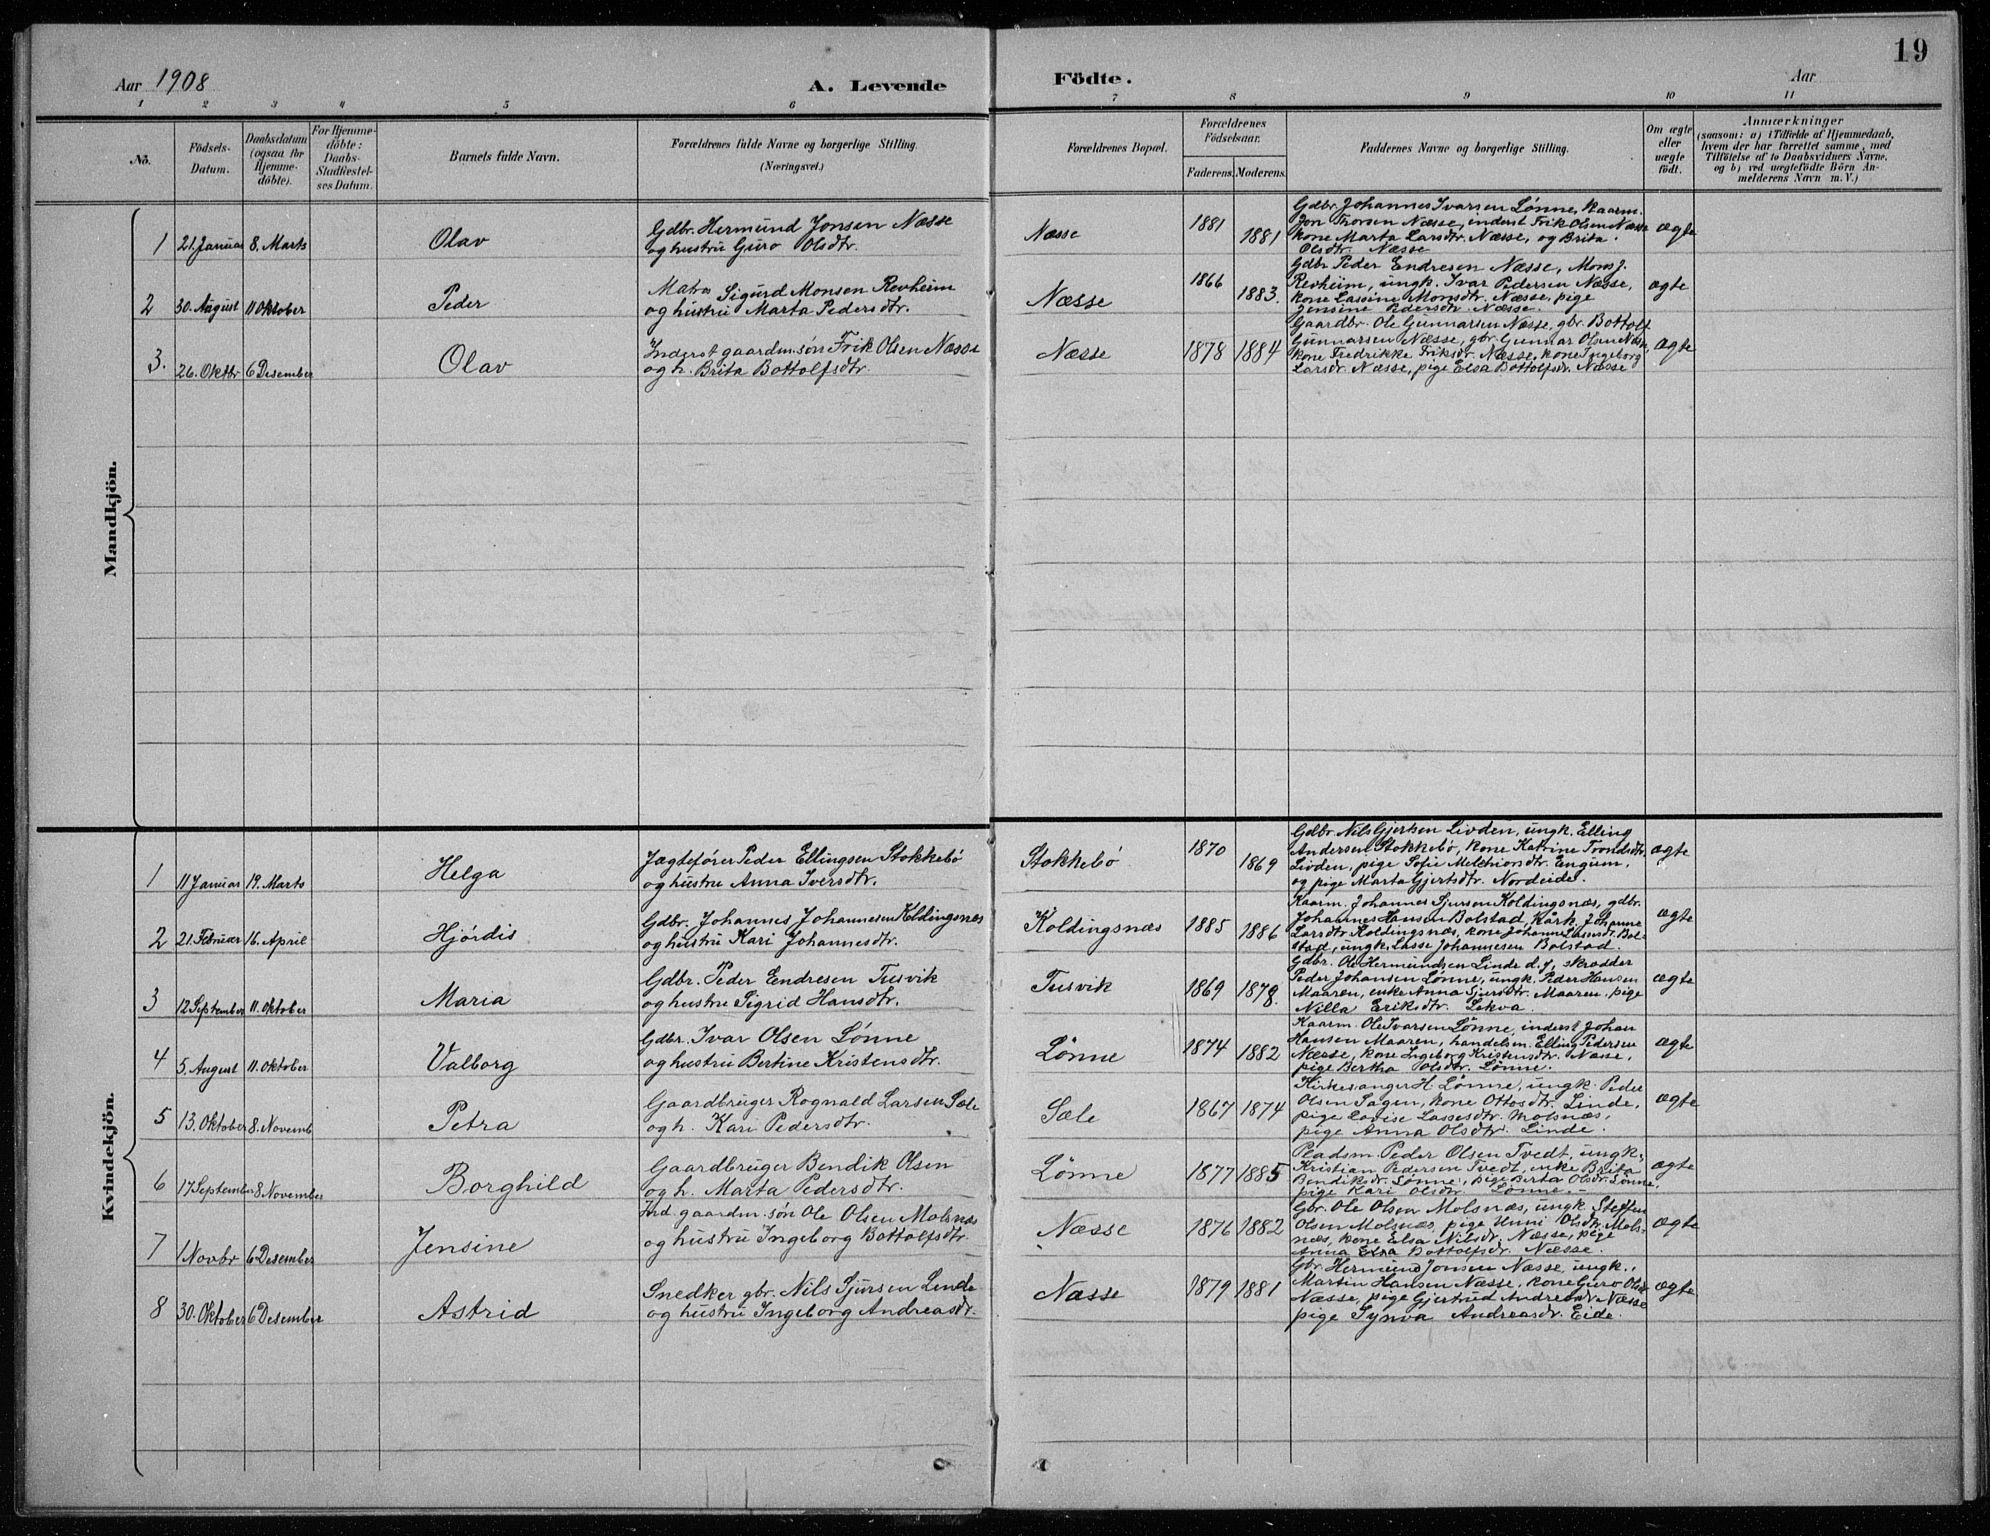 19
Aar 1908
A. Levende
Födte.
Aar
1 2 3 4 5 6 7 8 9 10 11
No.
Födsels-Datum.
Daabsdatum (ogsaa for Hjemme-döbte).
For Hjemme-döbte: Daabs-Stadfæstel-ses Datum.
Barnets fulde Navn.
Forældrenes fulde Navne og borgerlige Stilling. (Næringsvei.)
Forældrenes Bopæl.
Forældrenes Födselsaar.
Faderens. Moderens.
Faddernes Navne og borgerlige Stilling.
Om ægte eller uægte födt.
Anmærkninger
(saasom: a) i Tilfælde af Hjemmedaab,
hvem der har forrettet samme, med
Tilföielse af to Daabsvidners Navne,
og b) ved uægtefödte Börn An-
melderens Navn m. V.)
Mandkjön.
1 21. Januar 8. Marts Olav
Gdbr. Hermund Jonsen Næsse
og hustru Guro Olsdtr.
Næsse 1881 1881
Gdbr. Johannes Ivarsen Lønne, Kaarm.
Jon Thorsen Næsse, inderst Frik Olsen Næsse
kone Marta Larsdtr. Næsse, og Brita
Olsdtr. Næsse
ægte
2 30. August 11 Oktober Peder
Matros Sigurd Monsen Revheim
og hustru Marta Pedersdtr.
Næsse 1866 1883.
Gdbr Peder Endresen Næsse, Mons J.
Revheim, ungk. Ivar Pedersen Næsse,
kone Lassine Monsdtr. Næsse, pige
Jensine Pedersdtr Næsse.
ægte
3. 26. Oktbr 6 Desember Olav
Inderst gaardm. søn Frik Olsen Næsse
og h. Brita Bottolfsdtr.
Næsse 1878 1884
Gaardbr. Ole Gunnarsen Næsse, gbr. Bottolf
Gunnarsen Næsse, gbr. Gunnar Olsen Næsse,
kone Fredrikke Friksdr. Næsse, kone Ingeborg
Larsdr. Næsse, pige Elsa Bottolfsdr. Næsse
ægte
Kvindekjön.
1 11 Januar 19. Marts Helga
Jægtefører Peder Ellingsen Stokkebö
og hustru Anna Iversdtr.
Stokkebö 1870 1869
Gdbr. Nils Gjertsen Livden, ungk. Elling
Andersen Stokkebö, kone Katrine Trondsdtr.
Livden, pige Sofie Melchiorsdtr. Engum,
og pige Marta Gjertsdtr. Nordeide.
ægte
2 21. Februar 16. April Hjördis
Gdbr. Johannes Johannesen Koldingsnæs
og hustru Kari Johannesdtr.
Koldingsnæs 1885 1886
Kaarm. Johannes Sjursen Koldingsnæs, gdbr.
Johannes Hansen Bolstad, Kårk. Johanne
Larsdtr. Koldingsnæs, kone Johanne Lassesdtr. Bol-
stad, ungk. Lasse Johannesen Bolstad.
ægte
3 12 September 11. Oktober Maria
Gdbr. Peder Endresen Tusvik
og hustru Sigrid Hansdtr.
Tusvik 1869 1878.
Gdbr. Ole Hermundsen Linde d.y., skrædder
Peder Johansen Lønne, ungk. Peder Hansen
Maaren, enke Anna Sjursdtr. Maaren, pige
Nilla Eriksdtr. Lekva.
ægte
4 5. August 11. Oktober Valborg
Gdbr. Ivar Olsen Lønne
og hustru Bertine Kristensdtr.
Lønne 1874 1882
Kaarm. Ole Ivarsen Lønne, inderst Johan
Hansen Maaren, handelsm. Elling Pedersen
Næsse, kone Ingeborg Kristensdtr. Næsse,
pige Bertha Olsdtr. Lønne.
ægte
5 13. Oktober 8. Novemb Petra
Gaardbruger Rognald Larsen Sæle
og h. Kari Pedersdtr.
Sæle 1867 1874
Kirkesanger H. Lønne, ungk. Peder
Olsen Sagen, kone Ottosdtr. Linde,
pige Lovise Lassesdtr. Molsnæs,
pige Anna Olsdtr. Linde.
ægte
6 17 September 8 November Borghild
Gaardbruger Bendik Olsen
og h. Marta Pedersdtr.
Lønne 1877 1885
Pladsm. Peder Olsen Tvedt, ungk.
Kristian Pedersen Tvedt, enke Brita
Bendiksdr. Lønne, pige Berta Olsdr. Lønne,
pige Kari Olsdtr Lønne.
ægte
7 1 Novbr 6 Desember Jensine
Ind. gaardm. søn Ole Olsen Molsnæs
og hustru Ingeborg Bottolfsdtr.
Næsse 1876 1882
Gbr. Ole Olsen Molsnæs, ungk Steffen
Olsen Molsnæs, pige Unni Olsdr. Mols-
næs, kone Elsa Nilsdr. Næsse, pige
Anna Elsa Bottolfsdr. Næsse.
ægte
8 30. Oktober 6 Desember Astrid
Snedker gbr. Nils Sjursen Linde
og hustru Ingeborg Andreasdr.
Næsse 1879 1881
Gbr Hermund Jonsen Næsse, ungk.
Martin Hansen Næsse, kone Guro Olsdr.
Næsse, pige Gjertrud Andreasdr. Næsse
pige Synva Andreasdr. Eide.
ægte